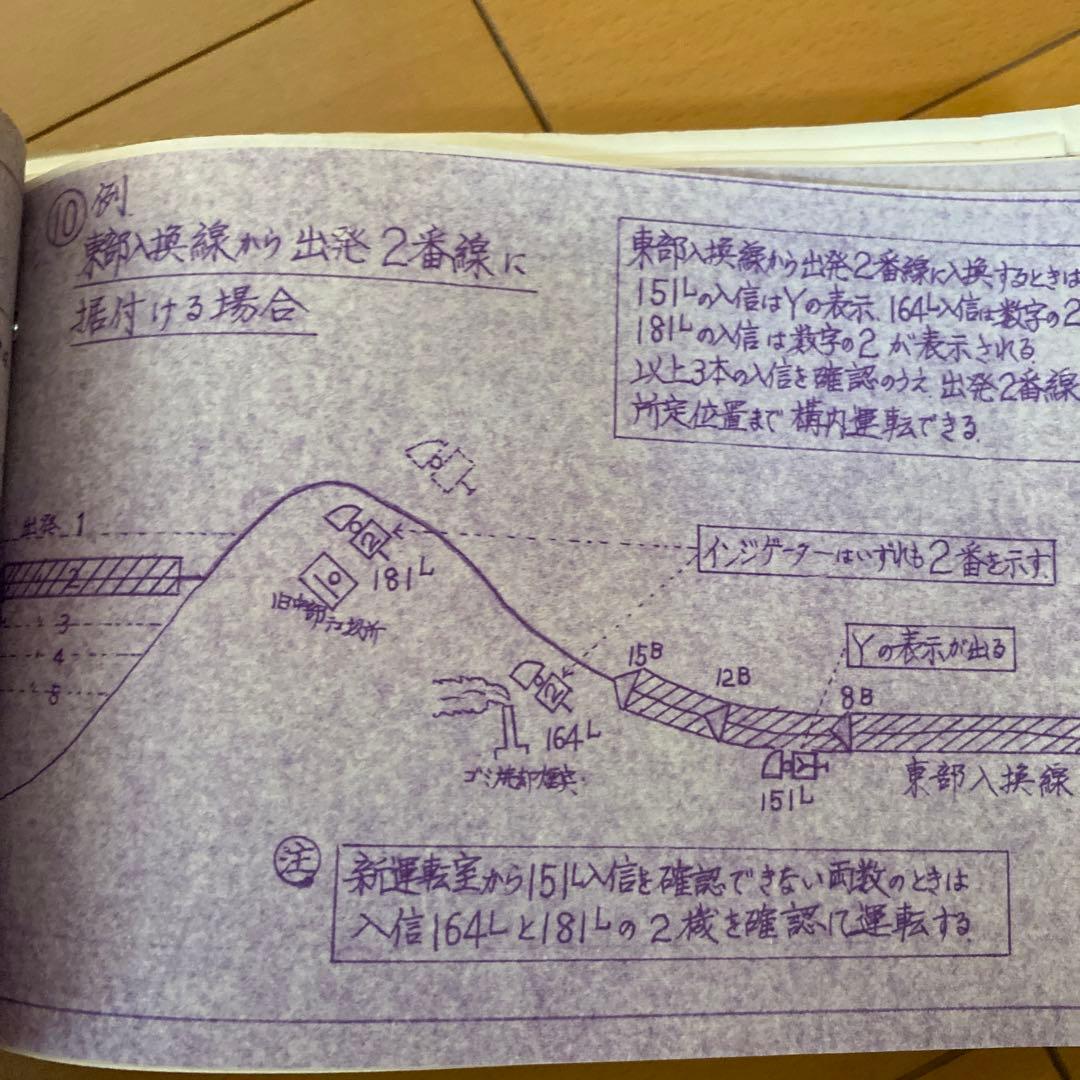 ⑩例
東部入換線から出発2番線に
据付ける場合
東部入換線から出発2番線に入換するときは
151Lの入信はYの表示、164L入信は数字の2
181Lの入信は数字の2が表示される
以上3本の入信を確認のうえ出発2番線
所定位置まで構内運転できる.
出発 1
2
3
4
5
2
181L
インジケーターはいずれも2番を示す.
Yの表示が出る
15B
12B
8B
2
164L
ゴミ焼却煙突.
151L
東部入換線
注
新運転室から151L入信を確認できない両数のときは
入信164Lと181Lの2機を確認して運転する.